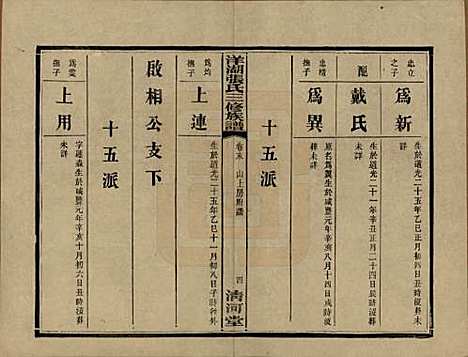 忠立
之子
為新
生於道光二十五年乙巳正月初四日丑時沒葬
未詳
配
戴氏
生於道光二十一年辛丑正月二十四日丑時沒葬
未詳
忠精
撫子
為異
原名爲翼生於咸豐元年辛亥八月十四日亥時沒
葬未詳
十五派
洋湖張氏三修族譜
卷末
山上房附譜
四
清河堂
為均
撫子
上連
生於道光二十五年乙巳十一月初八日子時在外
啟相公支下
十五派
為雯
撫子
上用
字蓮森生於咸豐元年辛亥十月初六日丑時沒葬
未詳